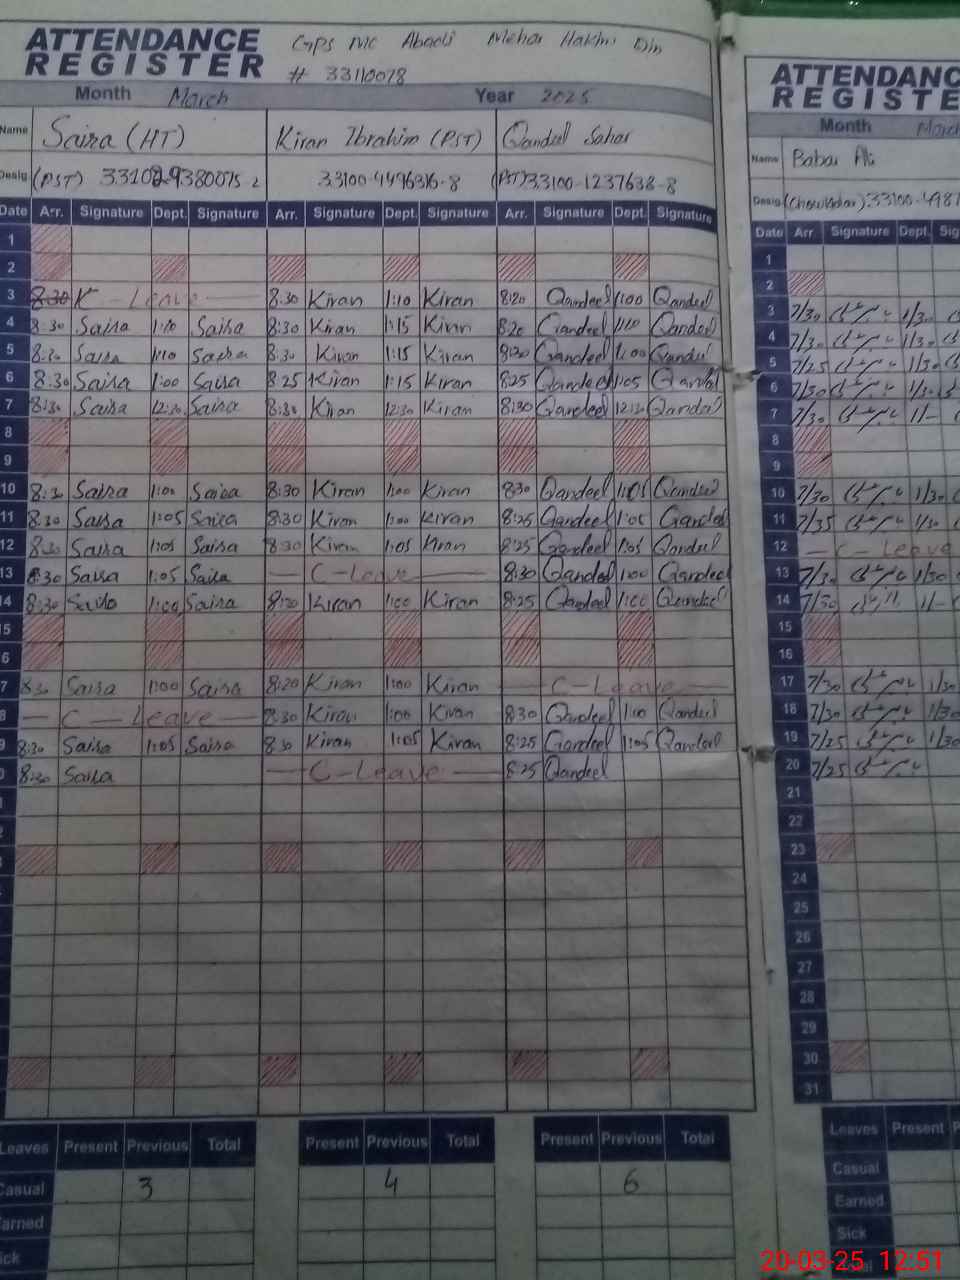 ATTENDANCE REGISTER
GPS MC Abadi Mehar Hakim Din
# 33110078
Month March Year 2025
Name Saira (HT) Kiran Ibrahim (PST) Qandeel Sahar
Desig (PST) 33102-9380075-2 33100-4496316-8 (PST) 33100-1237638-8
Date Arr. Signature Dept. Signature Arr. Signature Dept. Signature Arr. Signature Dept. Signature
1
2
3 8:30 K - Leave - 8:30 Kiran 1:10 Kiran 8:20 Qandeel 1:00 Qandeel
4 8:30 Saira 1:10 Saira 8:30 Kiran 1:15 Kiran 8:20 Qandeel 1:10 Qandeel
5 8:30 Saira 1:10 Saira 8:30 Kiran 1:15 Kiran 8:20 Qandeel 1:00 Qandeel
6 8:30 Saira 1:00 Saira 8:25 Kiran 1:15 Kiran 8:25 Qandeel 1:05 Qandeel
7 8:30 Saira 12:30 Saira 8:30 Kiran 12:30 Kiran 8:30 Qandeel 12:30 Qandeel
8
9
10 8:30 Saira 1:00 Saira 8:30 Kiran 1:00 Kiran 8:30 Qandeel 1:05 Qandeel
11 8:30 Saira 1:05 Saira 8:30 Kiran 1:00 Kiran 8:25 Qandeel 1:00 Qandeel
12 8:30 Saira 1:05 Saira 8:30 Kiran 1:05 Kiran 8:25 Qandeel 1:05 Qandeel
13 8:30 Saira 1:05 Saira - C-Leave - 8:30 Qandeel 1:00 Qandeel
14 8:30 Saira 1:00 Saira 8:30 Kiran 1:00 Kiran 8:25 Qandeel 1:00 Qandeel
5
6
7 8:30 Saira 1:00 Saira 8:20 Kiran 1:00 Kiran - C-Leave -
8 - C - Leave - 8:30 Kiran 1:00 Kiran 8:30 Qandeel 1:10 Qandeel
9 8:30 Saira 1:05 Saira 8:30 Kiran 1:05 Kiran 8:25 Qandeel 1:05 Qandeel
8:30 Saira - C-Leave - 8:25 Qandeel
Leaves Present Previous Total Present Previous Total Present Previous Total
Casual 3 4 6
Earned
ick
ATTENDANC
REGISTE
Month March
Name Babar Ali
Desig (Chowkidar) 33100-4987
Date Arr Signature Dept. Sig
1
2
3 7/30 1/30
4 7/30 1/30
5 7/25 1/30
6 7/30 1/30
7 7/30 1/-
8
9
10 7/30 1/30
11 7/35 1/30
12 - C - Leave
13 7/30 1/30
14 7/30 1/-
15
16
17 7/30 1/30
18 7/30 1/30
19 7/25 1/30
20 7/25
21
22
23
24
25
26
27
28
29
30
31
Leaves Present P
Casual
Earned
Sick
20-03-25 12:51